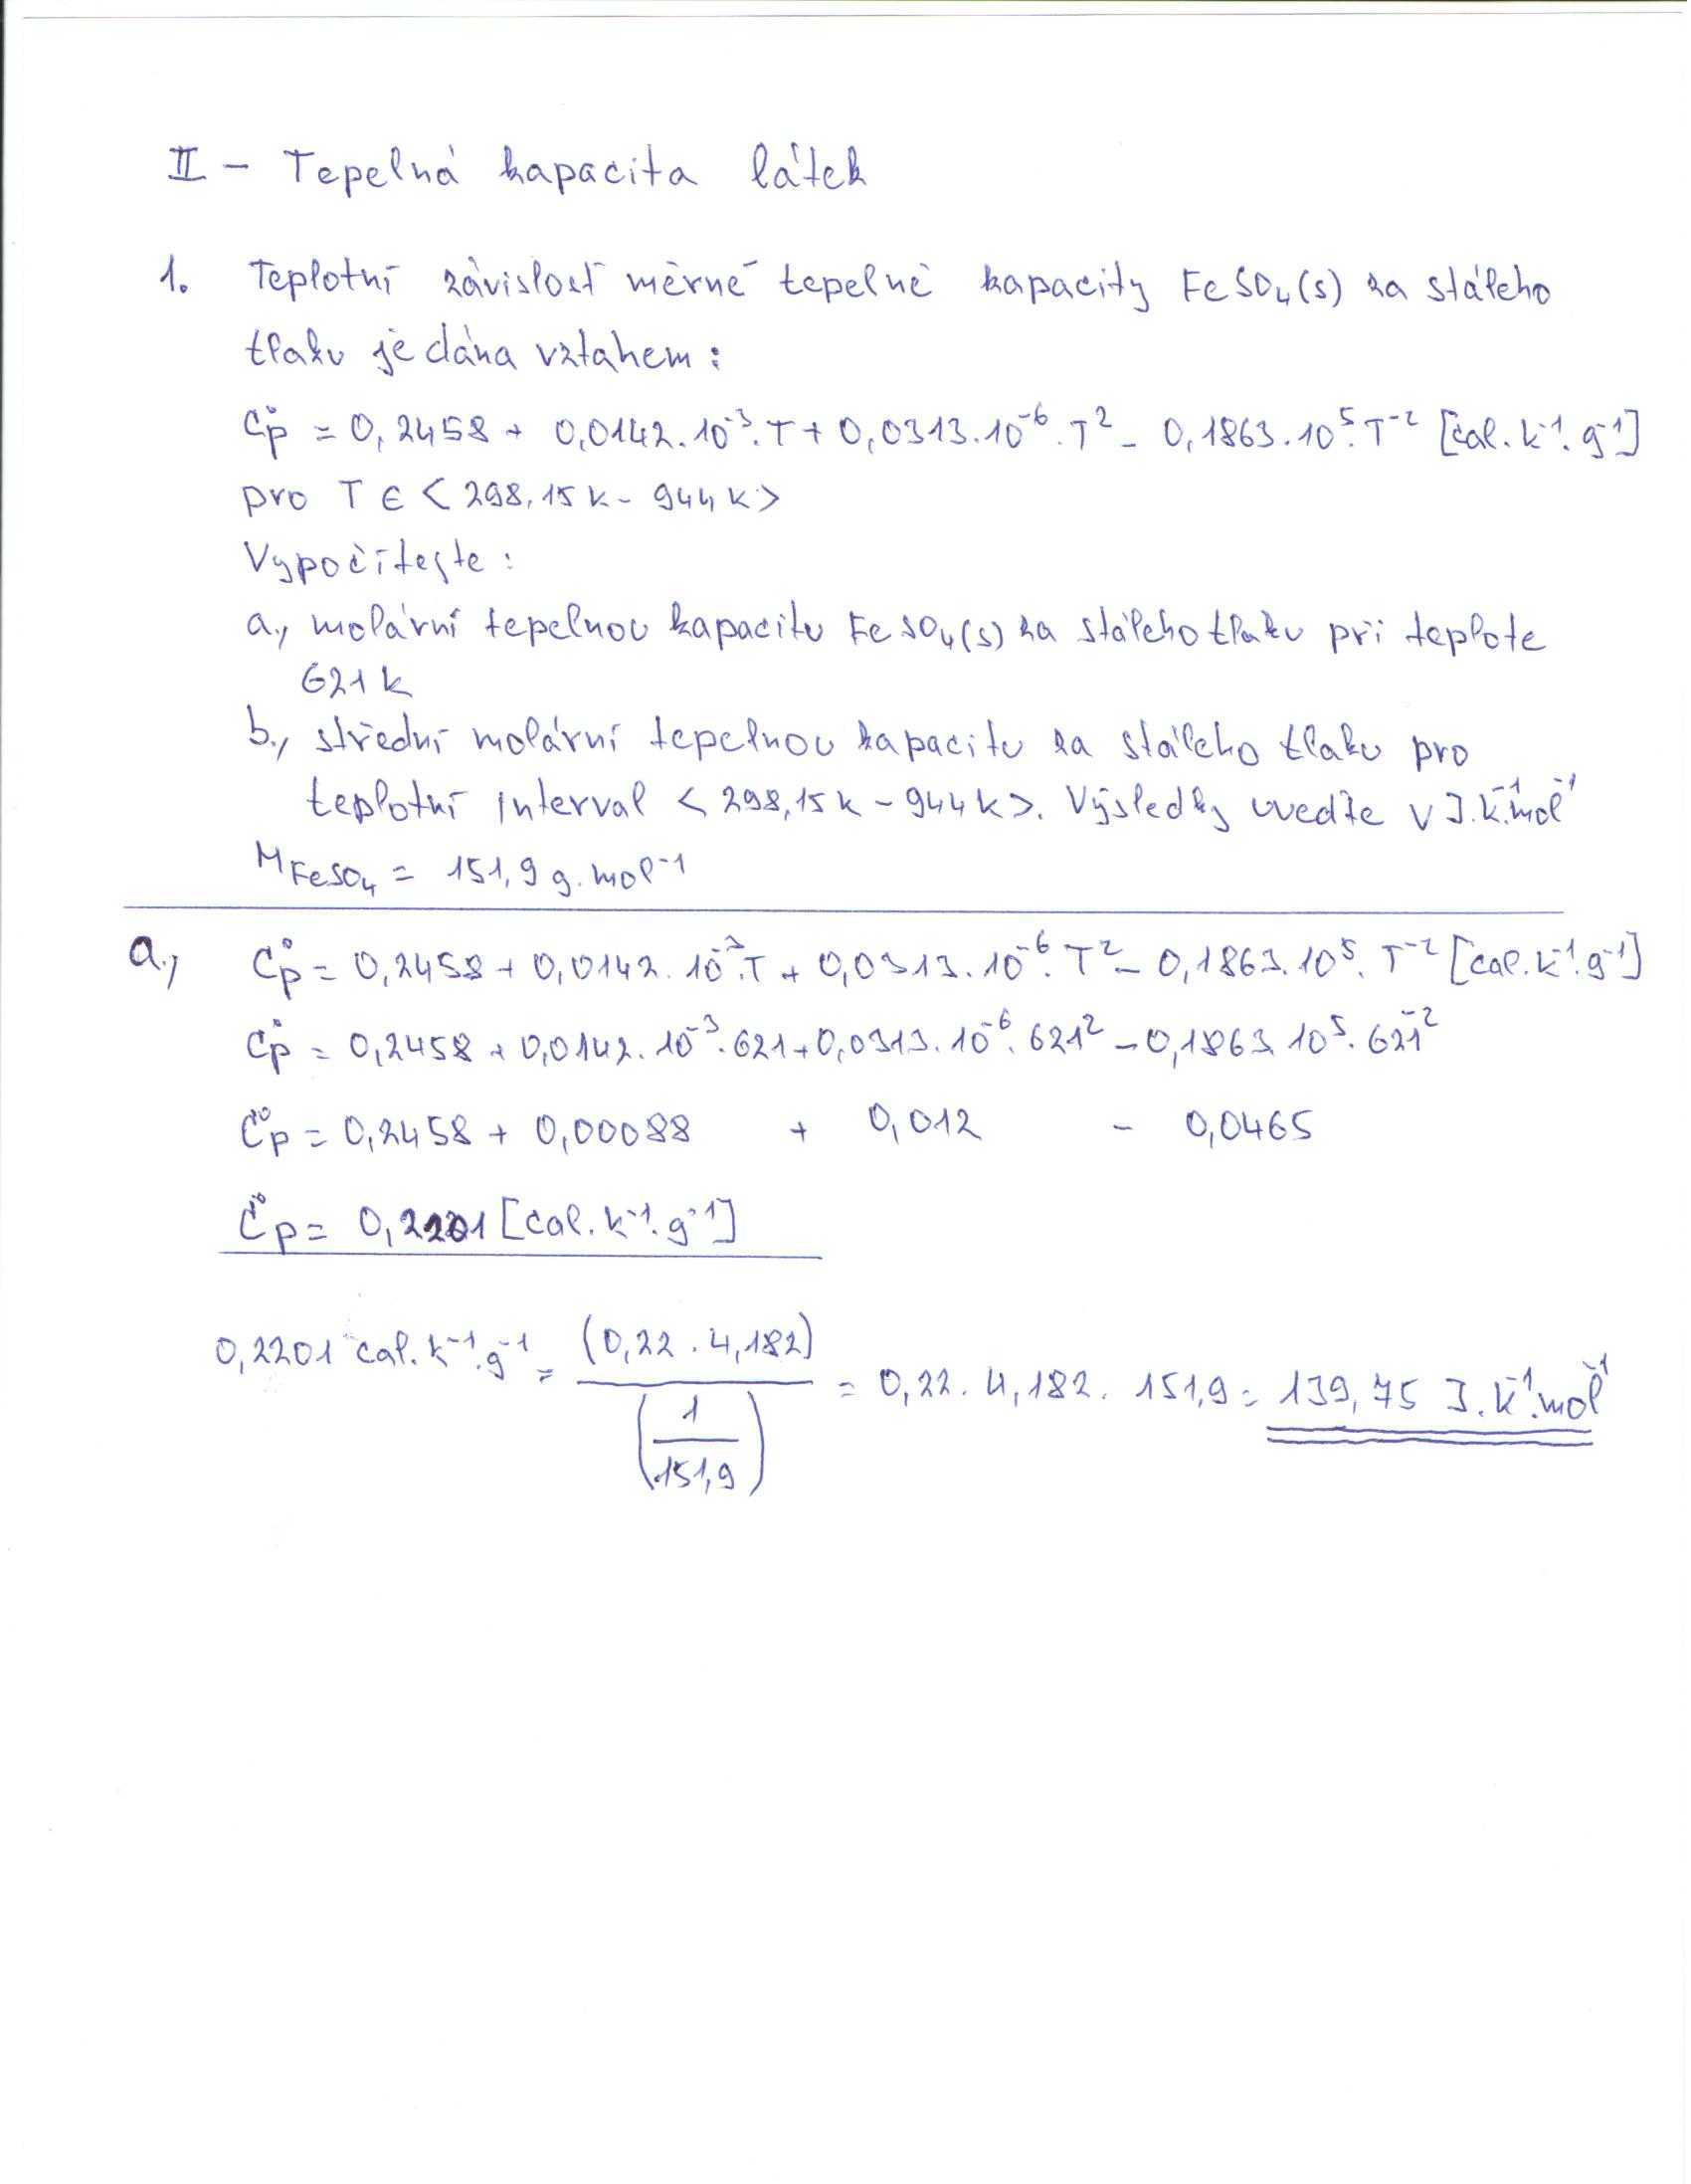 II – Tepelná kapacita látek
1. Teplotní závislost měrné tepelné kapacity FeSO₄(s) za stáleho
tlaku je dána vztahem:
C°p = 0,2458 + 0,0142.10⁻³.T + 0,0313.10⁻⁶.T² – 0,1863.10⁵.T⁻² [cal.K⁻¹.g⁻¹]
pro T ∈ <298,15K – 944K>
Vypočítejte:
a., molární tepelnou kapacitu FeSO₄(s) za stáleho tlaku při teplote
621K
b., střední molární tepelnou kapacitu za stáleho tlaku pro
teplotní interval <298,15K – 944K>. Výsledky uveďte v J.K⁻¹.mol⁻¹
M FeSO₄ = 151,9 g.mol⁻¹
a., C°p = 0,2458 + 0,0142.10⁻³.T + 0,0313.10⁻⁶.T² – 0,1863.10⁵.T⁻² [cal.K⁻¹.g⁻¹]
C°p = 0,2458 + 0,0142.10⁻³.621 + 0,0313.10⁻⁶.621² – 0,1863.10⁵.621⁻²
C°p = 0,2458 + 0,00088 + 0,012 – 0,0465
C°p = 0,2201 [cal.K⁻¹.g⁻¹]
0,2201 cal.K⁻¹.g⁻¹ = (0,22 . 4,182) / (1/151,9) = 0,22 . 4,182 . 151,9 = 139,75 J.K⁻¹.mol⁻¹